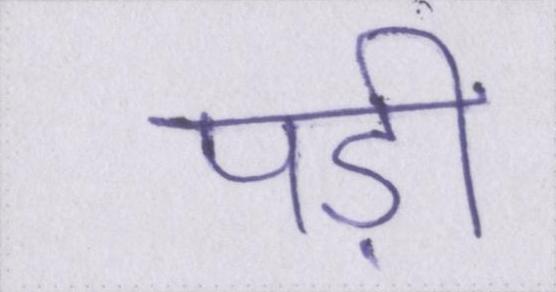 पड़ीं